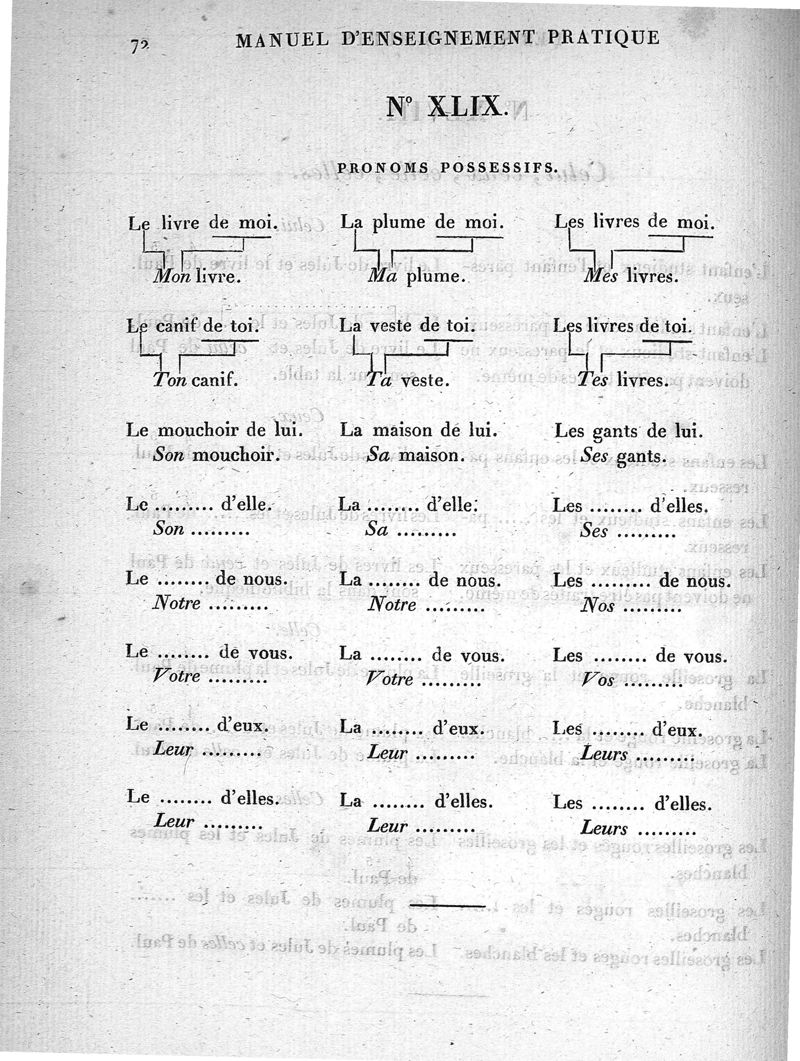 72 MANUEL D'ENSEIGNEMENT PRATIQUE
Nº XLIX.
PRONOMS POSSESSIFS.
Le livre de moi. La plume de moi. Les livres de moi.
Mon livre. Ma plume. Mes livres.
Le canif de toi. La veste de toi. Les livres de toi.
Ton canif. Ta veste. Tes livres.
Le mouchoir de lui. La maison de lui. Les gants de lui.
Son mouchoir. Sa maison. Ses gants.
Le ......... d'elle. La ........ d'elle. Les ......... d'elles.
Son ......... Sa ......... Ses .........
Le ........ de nous. La ........ de nous. Les ......... de nous.
Notre ......... Notre ......... Nos .........
Le ........ de vous. La ........ de vous. Les ........ de vous.
Votre ......... Votre ......... Vos .........
Le ........ d'eux. La ........ d'eux. Les ........ d'eux.
Leur ......... Leur ......... Leurs .........
Le ........ d'elles. La ........ d'elles. Les ........ d'elles.
Leur ......... Leur ......... Leurs .........